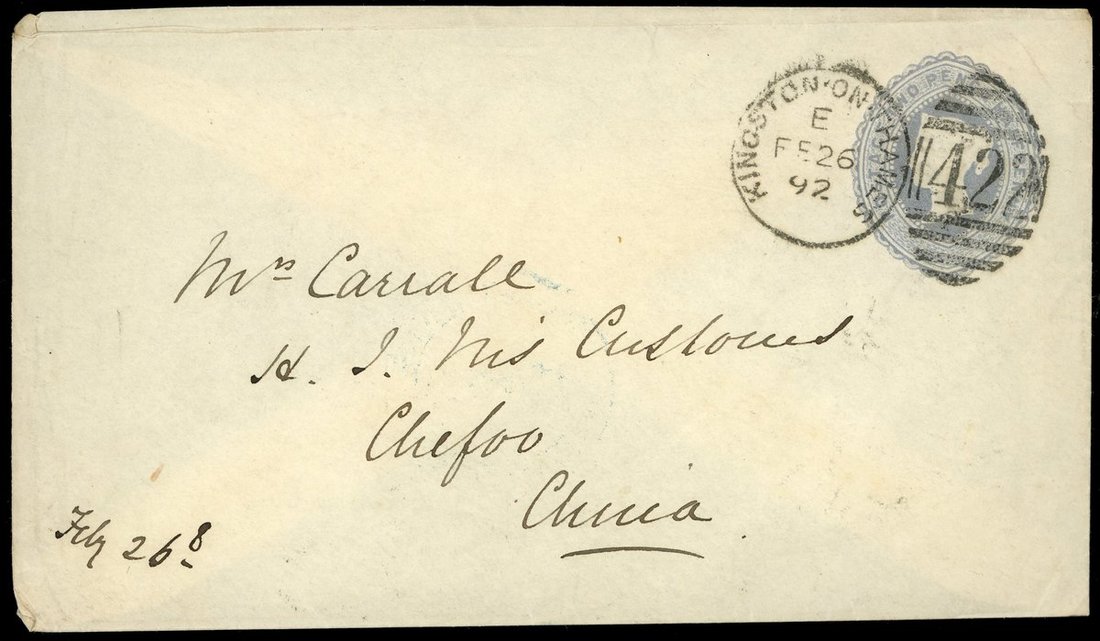 KINGSTON-ON-THAMES
E
FE 26
92
422
TWO PENCE
Mrs Carrall
H. I. M's Customs
Chefoo
China
Feby 26